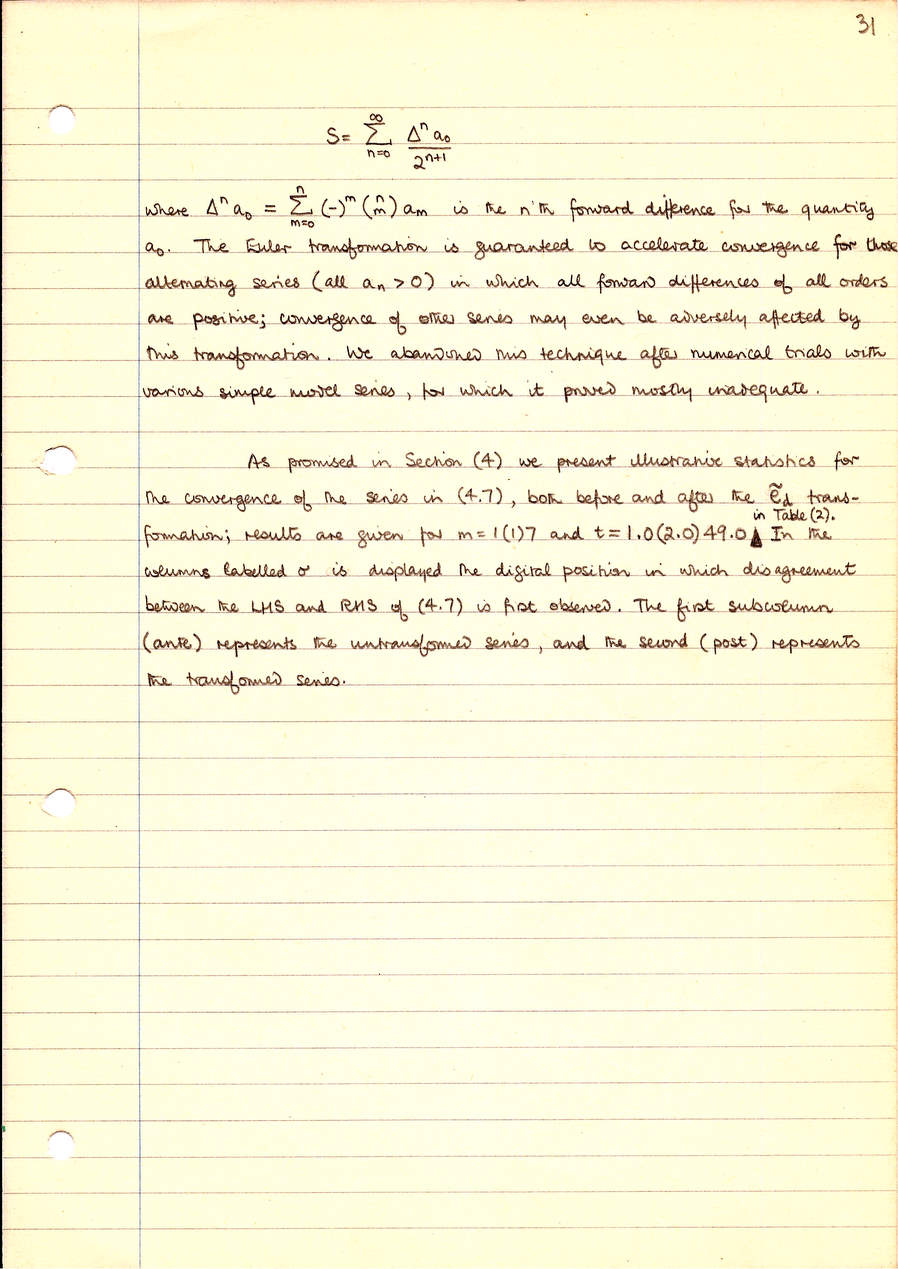 31
S = ∑_{n=0}^{∞} Δⁿa₀ / 2ⁿ⁺¹
where Δⁿa₀ = ∑_{m=0}^{n} (-)ᵐ (n m) aₘ is the n'th forward difference for the quantity
a₀. The Euler transformation is guaranteed to accelerate convergence for those
alternating series (all aₙ > 0) in which all forward differences of all orders
are positive; convergence of other series may even be adversely affected by
this transformation. We abandoned this technique after numerical trials with
various simple model series, for which it proved mostly inadequate.
As promised in Section (4) we present illustrative statistics for
the convergence of the series in (4.7), both before and after the ẽ_d trans-
formation; results are given for m = 1(1)7 and t = 1.0(2.0)49.0 in Table (2). In the
columns labelled σ is displayed the digital position in which disagreement
between the LHS and RHS of (4.7) is first observed. The first subcolumn
(ante) represents the untransformed series, and the second (post) represents
the transformed series.